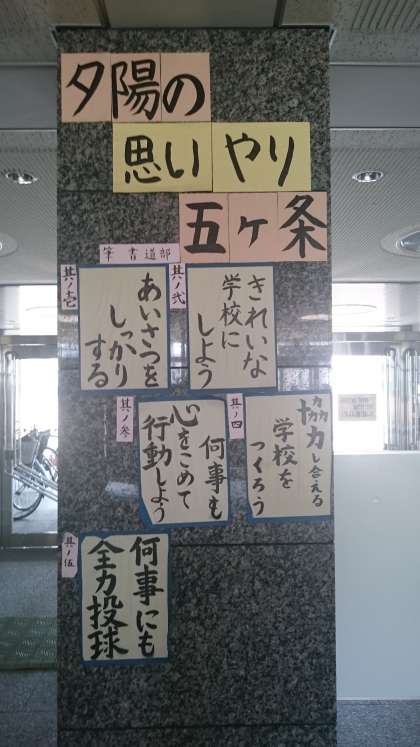 夕陽の
思いやり
五ヶ条
筆 書道部
其ノ壱
あいさつを
しっかり
する
其ノ弐
きれいな
学校に
しよう
其ノ参
何事も
心をこめて
行動しよう
其ノ四
協力し合える
学校を
つくろう
其ノ伍
何事にも
全力投球